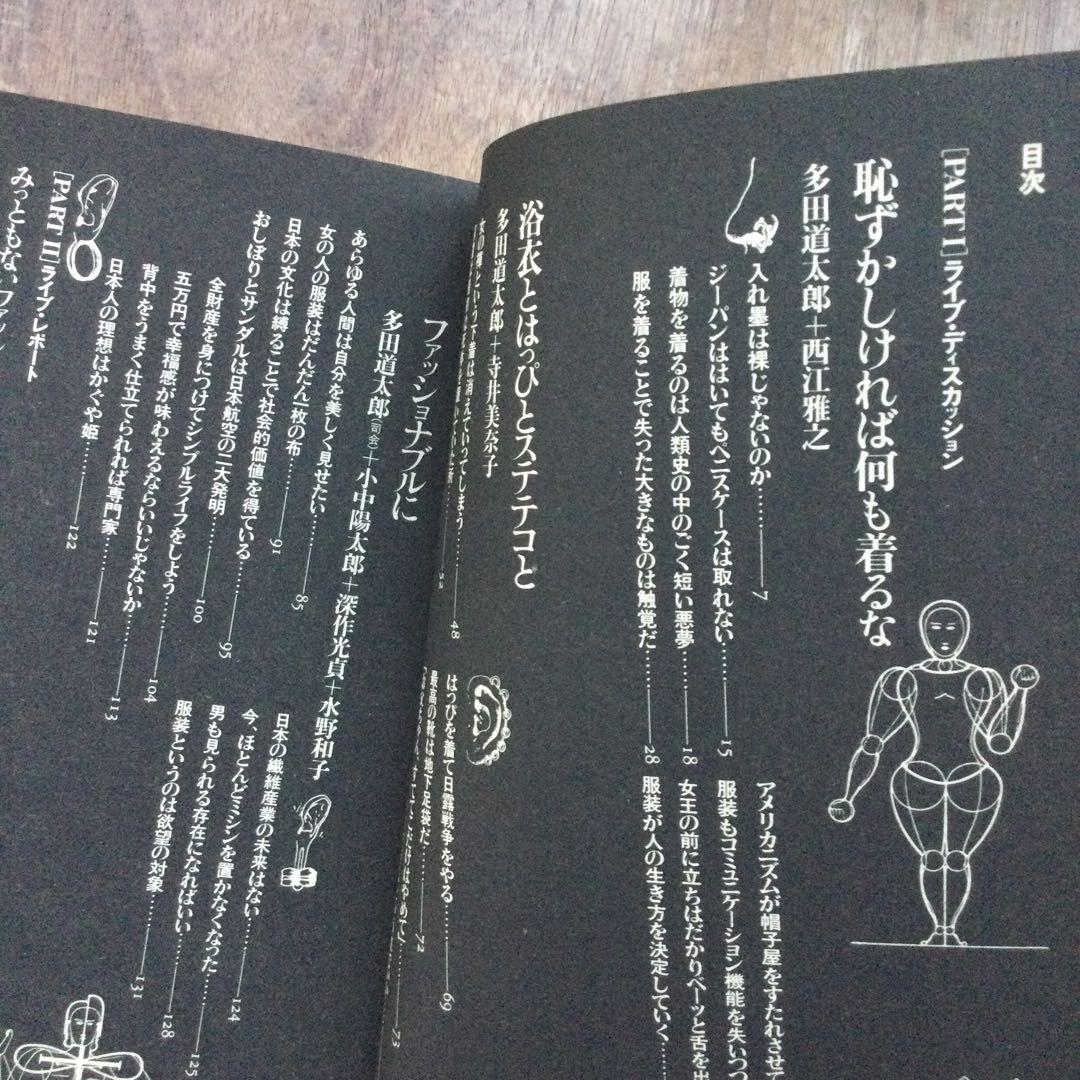 目次
[PART I]ライブ・ディスカッション
恥ずかしければ何も着るな
多田道太郎+西江雅之
入れ墨は裸じゃないのか……7
ジーパンははいてもペニスケースは取れない……15
着物を着るのは人類史の中のごく短い悪夢……18
服を着ることで失った大きなものは触覚だ……28
アメリカニズムが帽子屋をすたれさせて
服装もコミュニケーション機能を失いつつ
女王の前に立ちはだかりベーッと舌を出
服装が人の生き方を決定していく……
浴衣とはっぴとステテコと
多田道太郎+寺井美奈子
という下着は消えていってしまう……48
52
はっぴを着て日露戦争をやる……69
最高の靴は地下足袋だ……72
だけはやめて……73
ファッショナブルに
多田道太郎(司会)+小中陽太郎+深作光貞+水野和子
あらゆる人間は自分を美しく見せたい……85
女の人の服装はだんだん一枚の布……91
日本の文化は縛ることで社会的価値を得ている……95
おしぼりとサンダルは日本航空の二大発明……100
全財産を身につけてシンプルライフをしよう……104
五万円で幸福感が味わえるならいいじゃないか……113
背中をうまく仕立てられれば専門家……121
日本人の理想はかぐや姫……122
日本の繊維産業の未来はない……124
今、ほとんどミシンを置かなくなった……125
男も見られる存在になればいい……128
服装というのは欲望の対象……131
[PART II]ライブ・レポート
みっともないファッ